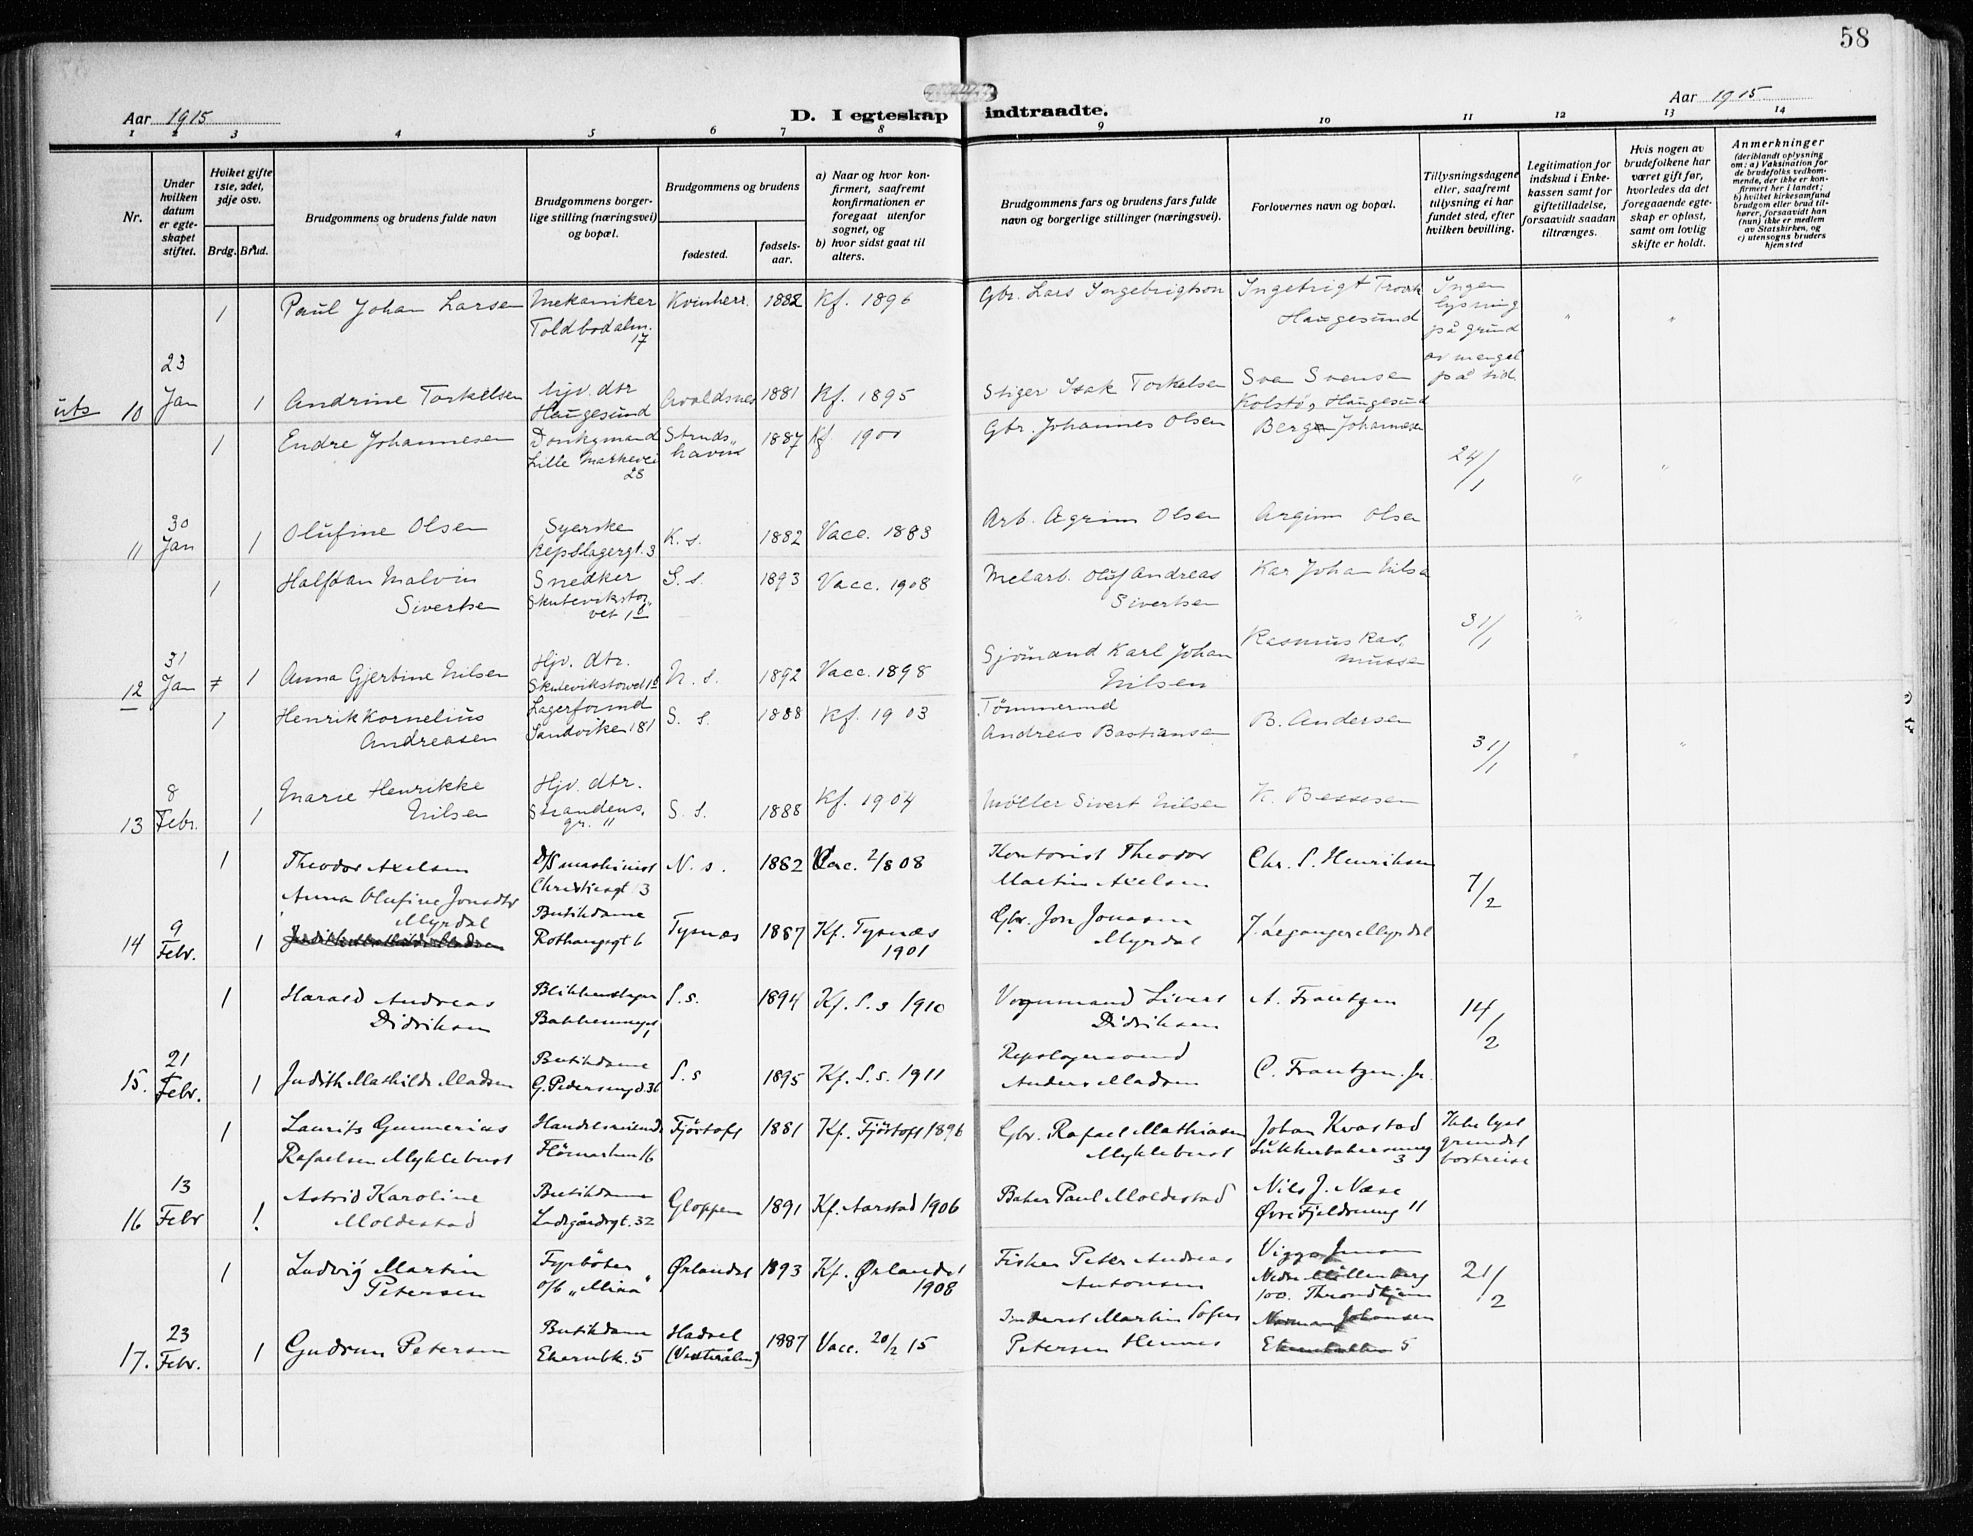 58
Aar 1915
D. I egteskap indtraadte.
Aar 1915
1 2 3 4 5 6 7 8 9 10 11 12 13 14
Nr.
Under hvilken datum er egteskapet stiftet.
Hviket gifte 1ste, 2det, 3dje osv.
Brdg. Brud.
Brudgommens og brudens fulde navn
Brudgommens borgerlige stilling (næringsvei) og bopæl.
Brudgommens og brudens
fødested.
fødselsaar.
a) Naar og hvor konfirmert, saafremt konfirmationen er foregaat utenfor sognet, og
b) hvor sidst gaat til alters.
Brudgommens fars og brudens fars fulde navn og borgerlige stillinger (næringsvei).
Forlovernes navn og bopæl.
Tillysningsdagene eller, saafremt tillysning ei har fundet sted, efter hvilken bevilling.
Legitimation for indskud i Enkekassen samt for giftetilladelse, forsaavidt saadan tiltrænges.
Hvis nogen av brudefolkene har været gift før, hvorledes da det foregaaende egteskap er opløst, samt om lovlig skifte er holdt.
Anmerkninger
(deriblandt oplysning om: a) Vaksination for de brudefolks vedkommende, der ikke er konfirmert her i landet; b) hvilket kirkesamfund brudgom eller brud tilhører, forsaavidt han (hun) ikke er medlem av Statskirken, og c) utensogns bruders hjemsted
1 Paul Johan Larsen Mekaniker Kvinherr. 1882 Kf. 1896 Gbr. Lars Ingebrigtson Ingebrigt Ingen
Toldbodalm. 17 Haugesund lysning
på grund
av mangel
på tid.
uts 10 23 Jan 1 Andrine Torkelsen Hjv. dtr Avaldsnes 1881 Kf. 1895 Stiger Isak Torkelsen Sven Svensen
Haugesund Kolstø, Haugesund
1 Endre Johannesen Donkymand 1887 Kf 1901 Gbr. Johannes Olsen Berge Johannesen
Lille Markevei 28 24/1
11 30 Jan 1 Olufine Olsen Syerske K. s. 1882 Vacc. 1883 Arb. Agrim Olsen Argim Olsen
Repslagergt. 3
1 Halfdan Malvin Snedker S. s. 1893 Vacc. 1908 Melarb. Oluf Andreas Kar Johan Nilsen
Sivertsen Skutevikstorvet 1 b Sivertsen
31/1
12 31 Jan 1 Anna Gjertine Nilsen Hjv. dtr. N. s. 1892 Vacc. 1898 Sjömand Karl Johan Rasmus Rasmussen
Skutevikstorvet 1b Nilsen
1 Henrik Kornelius Lagerformd S. s. 1888 Kf. 1903 Tömmermd B. Andersen
Andreasen Sandviken 181 Andreas Bastiansen
31/1
13 8 Febr. 1 Marie Henrikke Hjv. dtr. S. s. 1888 Kf. 1904 Möller Sivert Nilsen K. Bessesen
Nilsen Strandens gr. 11
1 Theodor Axelsen D/S maskinist N. s. 1882 Vac. 2/8 08 Kontorist Theodor Chr. S. Henriksen
Christiesgt 13 Martin Axelsen 7/2
14 9 Febr. 1 Anna Olufine Jonsdtr Butikdame Tysnæs 1887 Kf. Tysnæs Gbr. Jon Jonassen
Myrdal 1901 Myrdal
1 Harald Andreas S.s. 1894 Kf. S.s 1910 Vognmand Sivert A. Frantzen
Didriksen Didriksen 14/2
15. 21 Febr. 1 Judith Mathilde Madsen Butikdame S.s 1895 Kf. S.s. 1911 Repslagersvend C. Frantzen. Jr.
G. Pedersmgd. 36 Anders Madsen
1 Laurits Gunnerius Fjörtoft 1881 Kf. Fjörtoft 1896 Gbr. Rafael Mathiasen Johan Kvastad Ikke lyst
Rafaelsen Myklebust 16 Myklebust Sukkerhusbersmug 3 grundet
bortreise
16 13 Febr 1 Astrid Karoline Butikdame Gloppen 1891 Kf. Aarstad 1906 Baker Paul Moldestad Nils J. Næse
Moldestad Ladegårdsgt. 32 Øvre Fjeldsmug 11
1 Ludvig Martin Fyrböter Ørlandet 1893 Kf. Ørlandet Fisker Peter Andreas Viggo Jensen
Petersen o/b „Mira" 1908 Antonsen Nedre Möllenberg 21/2
100. Throndhjem
17. 23 Febr. 1 Gudrun Petersen Butikdame Hadsel 1887 Vacc. 20/2 15 Martin Sofus Norman Johansen
Ekerubk. 5 (Vesterålen) Petersen Hennes 5